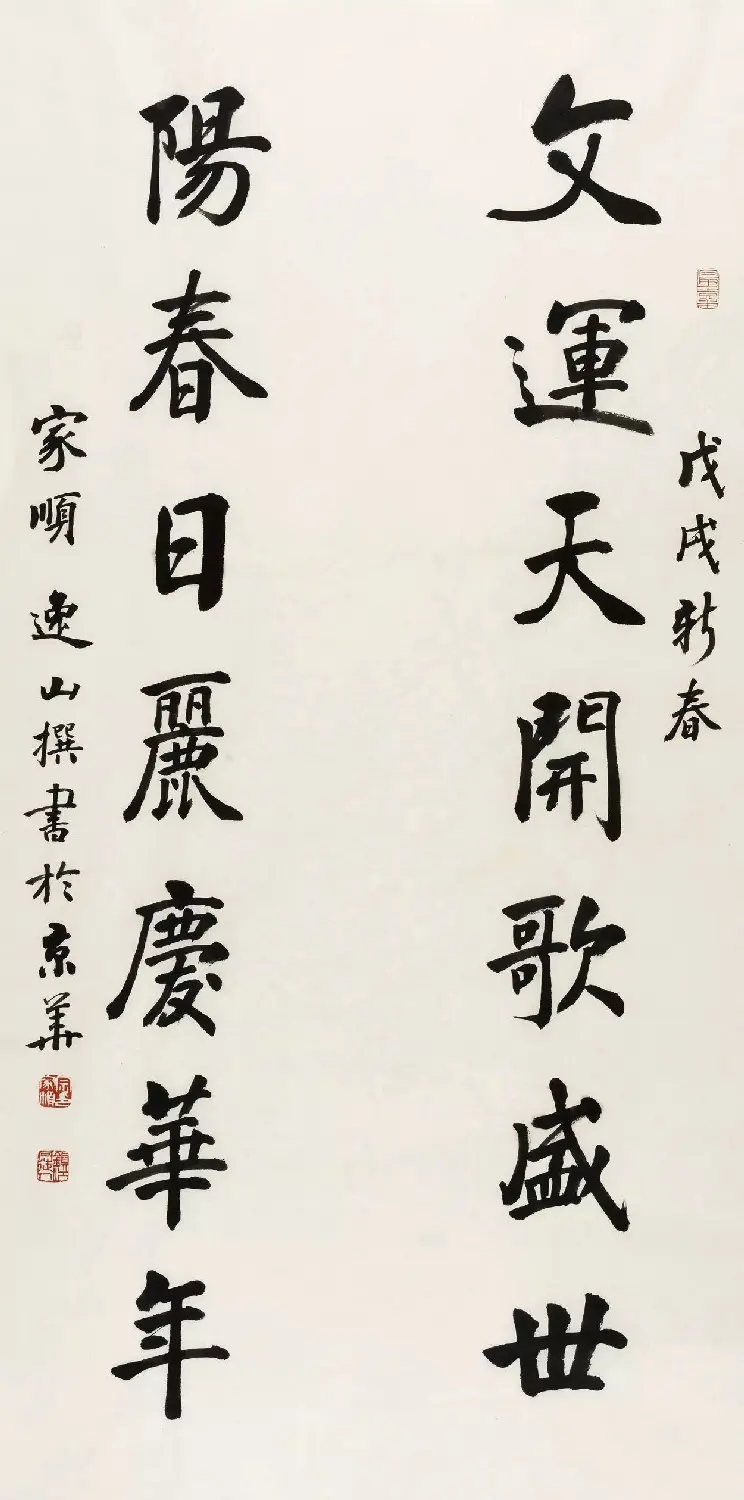 戊戌新春
文運天開歌盛世
陽春日麗慶華年
家順逸山撰書於京華